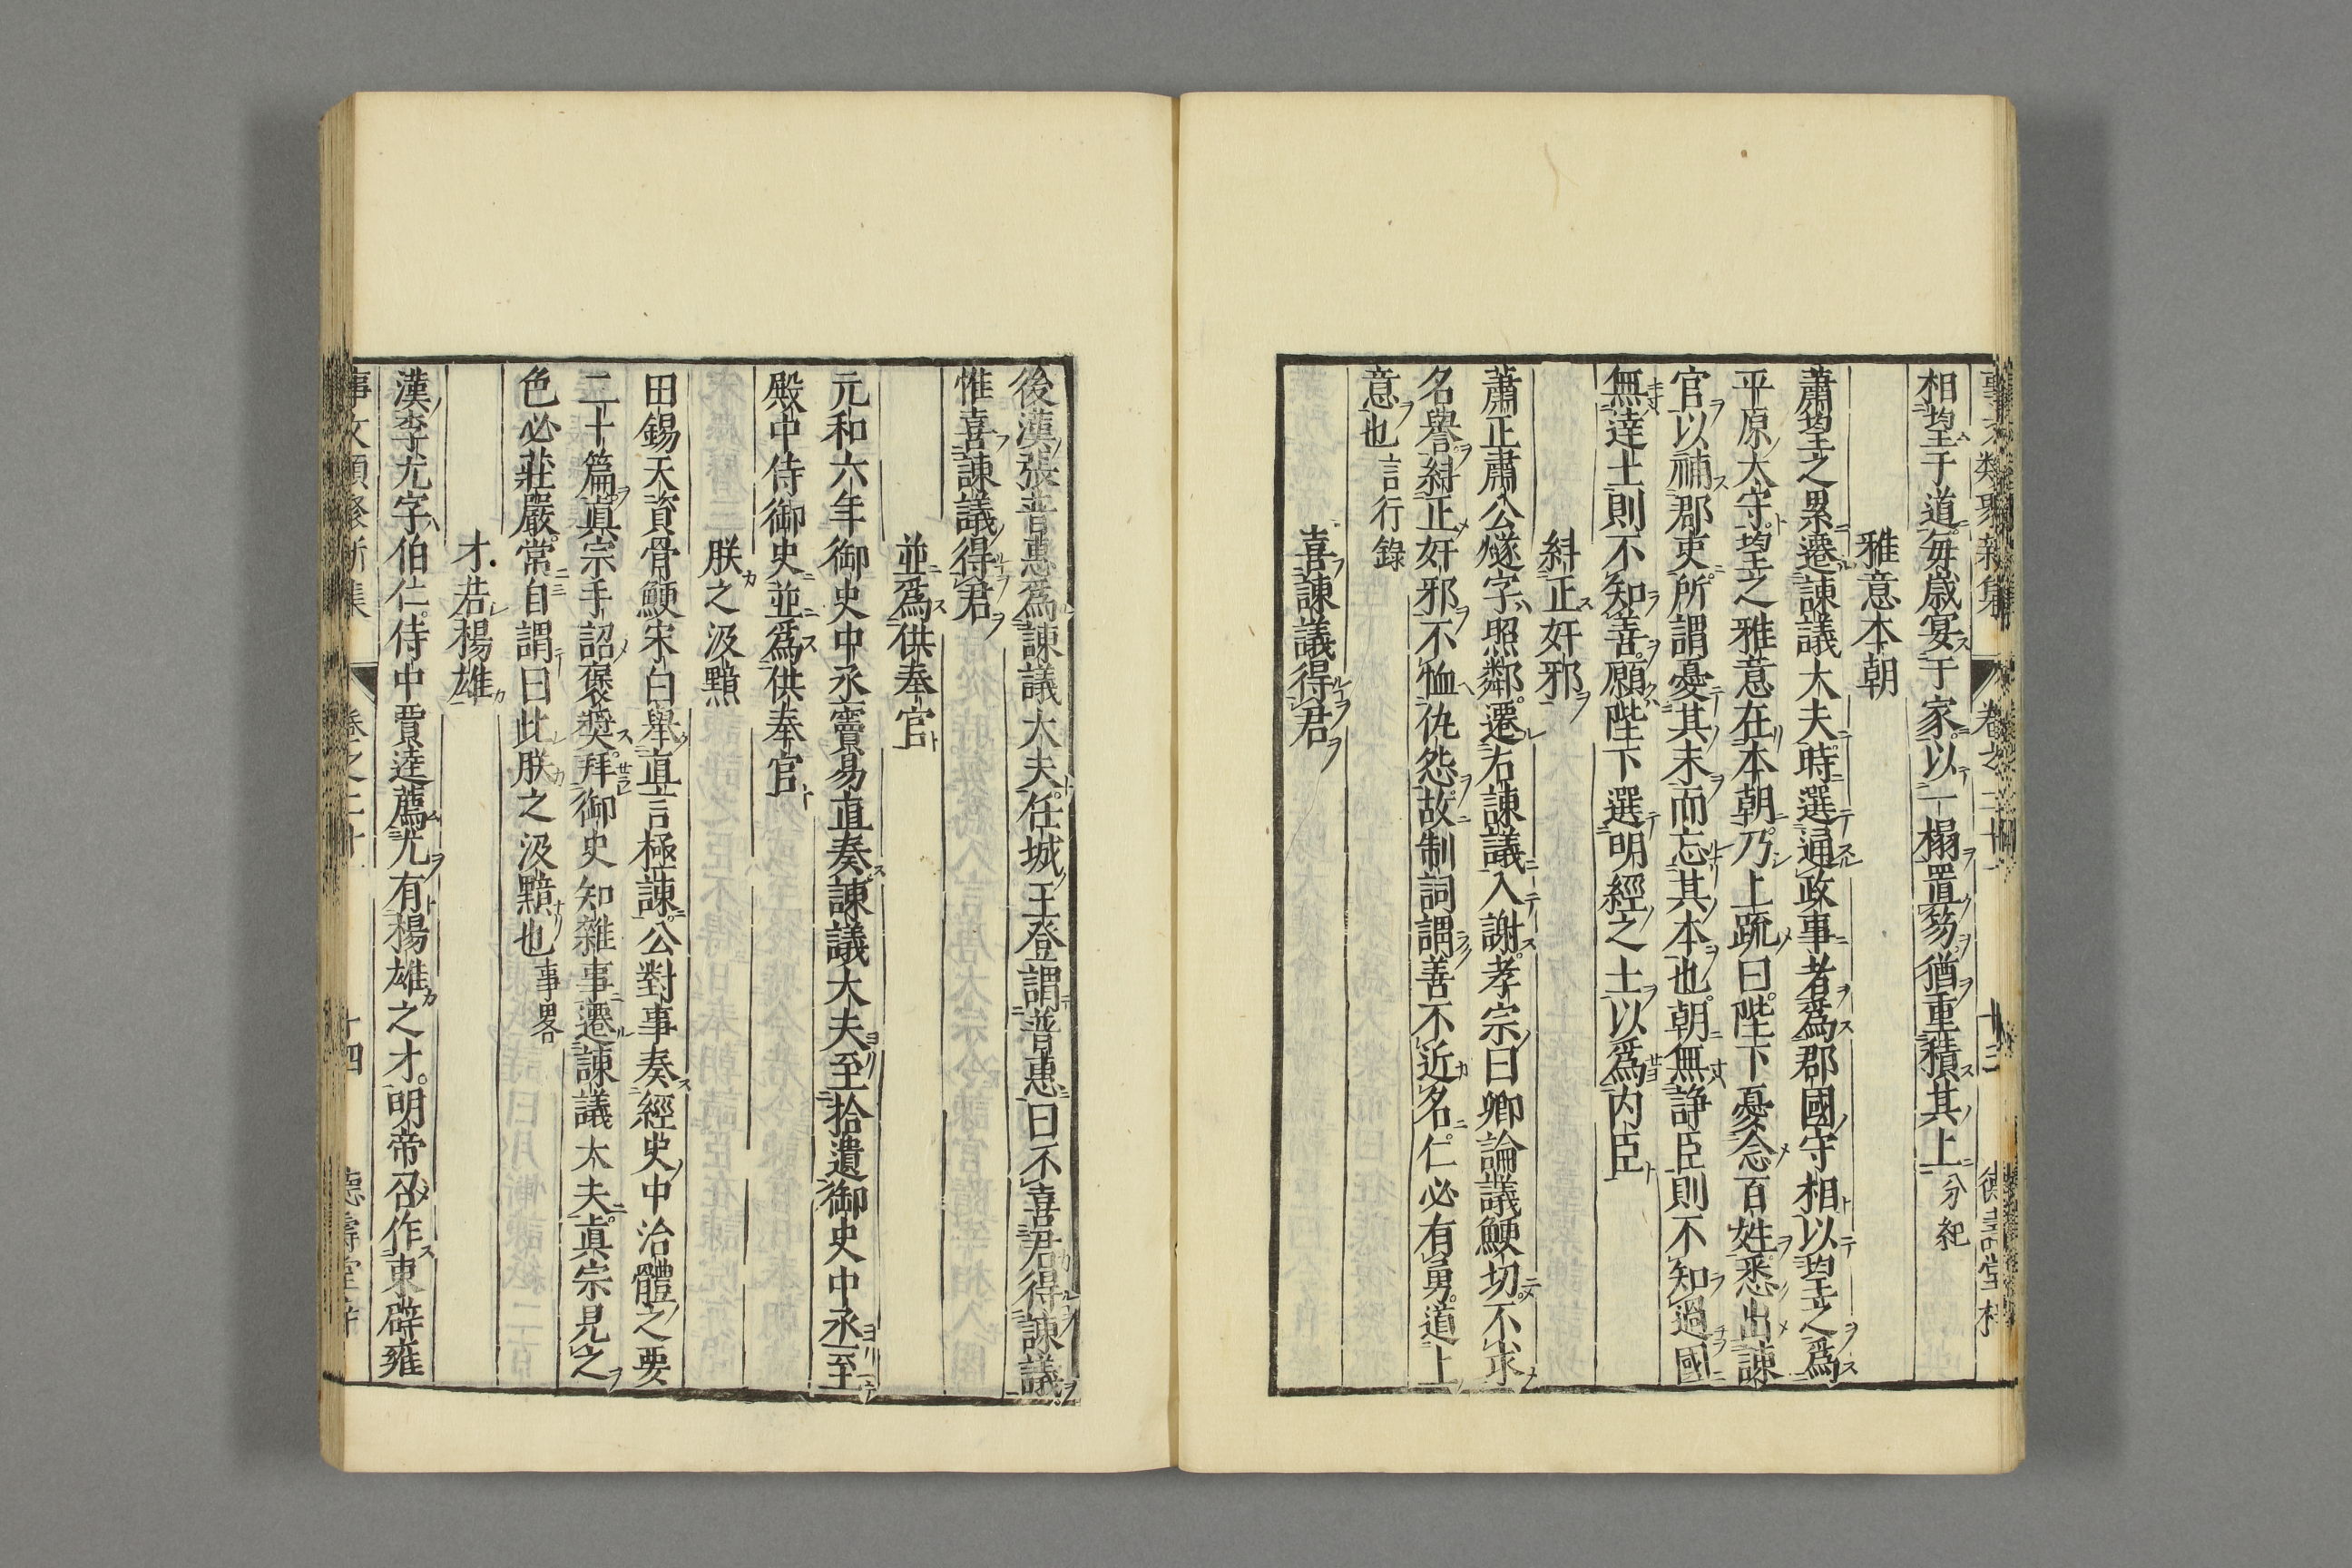 相望于道每歳宴于家以一榻置笏猶重積其上分紀
雅意本朝
蕭望之累遷諌議大夫時選通政事者爲郡國守相以望之爲
平原太守望之雅意在本朝乃上疏曰陛下憂念百姓悉出諌
官以補郡吏所謂憂其末而忘其本也朝無諍臣則不知過國
無達士則不知善願陛下選明經之士以爲内臣
糾正奸邪
蕭正肅公燧字照鄰遷右諌議入謝孝宗曰卿論議鯁切不求
名譽糾正奸邪不恤仇怨故制詞謂善不近名仁必有勇道上
意也言行錄
喜諌議得君
後漢張普惠爲諌議大夫任城王登謂普惠曰不喜君得諌議
惟喜諌議得君
並爲供奉官
元和六年御史中丞竇易直奏諌議大夫至拾遺御史中丞至
殿中侍御史並爲供奉官
朕之汲黯
田錫天資骨鯁宋白舉直言極諌公對事奏經史中治體之要
二十篇真宗手詔襃奬拜御史知雜事遷諌議大夫真宗見之
色必莊嚴常自謂曰此朕之汲黯也事畧
才若楊雄
漢李尤字伯仁侍中賈逵薦尤有楊雄之才明帝召作東辟雍
事文類聚新集 卷之二十一 十四 德壽堂梓